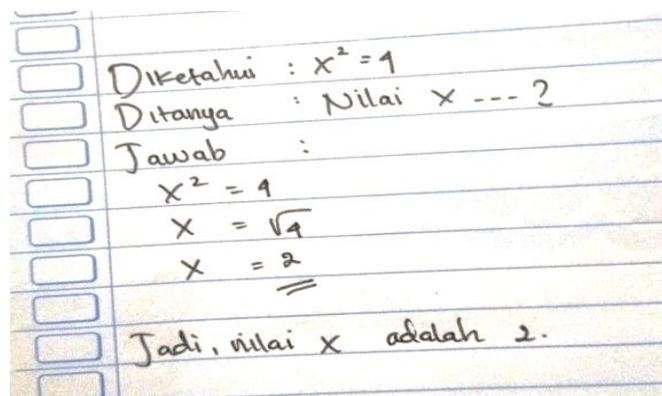 Diketahui : x² = 4
Ditanya : Nilai x ---?
Jawab :
x² = 4
x = √4
x = 2
Jadi, nilai x adalah 2.